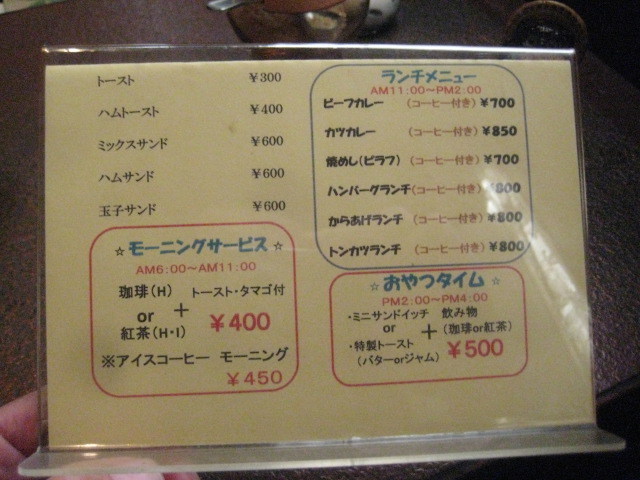 トースト ¥300
ハムトースト ¥400
ミックスサンド ¥600
ハムサンド ¥600
玉子サンド ¥600
☆モーニングサービス☆
AM6:00~AM11:00
珈琲(H) トースト・タマゴ付
or +
紅茶(H・I) ¥400
※アイスコーヒー モーニング
¥450
ランチメニュー
AM11:00~PM2:00
ビーフカレー (コーヒー付き) ¥700
カツカレー (コーヒー付き) ¥850
焼めし(ピラフ) (コーヒー付き) ¥700
ハンバーグランチ(コーヒー付き) ¥800
からあげランチ (コーヒー付き) ¥800
トンカツランチ (コーヒー付き) ¥800
☆おやつタイム☆
PM2:00~PM4:00
・ミニサンドイッチ 飲み物
or + (珈琲or紅茶)
・特製トースト ¥500
(バターorジャム)